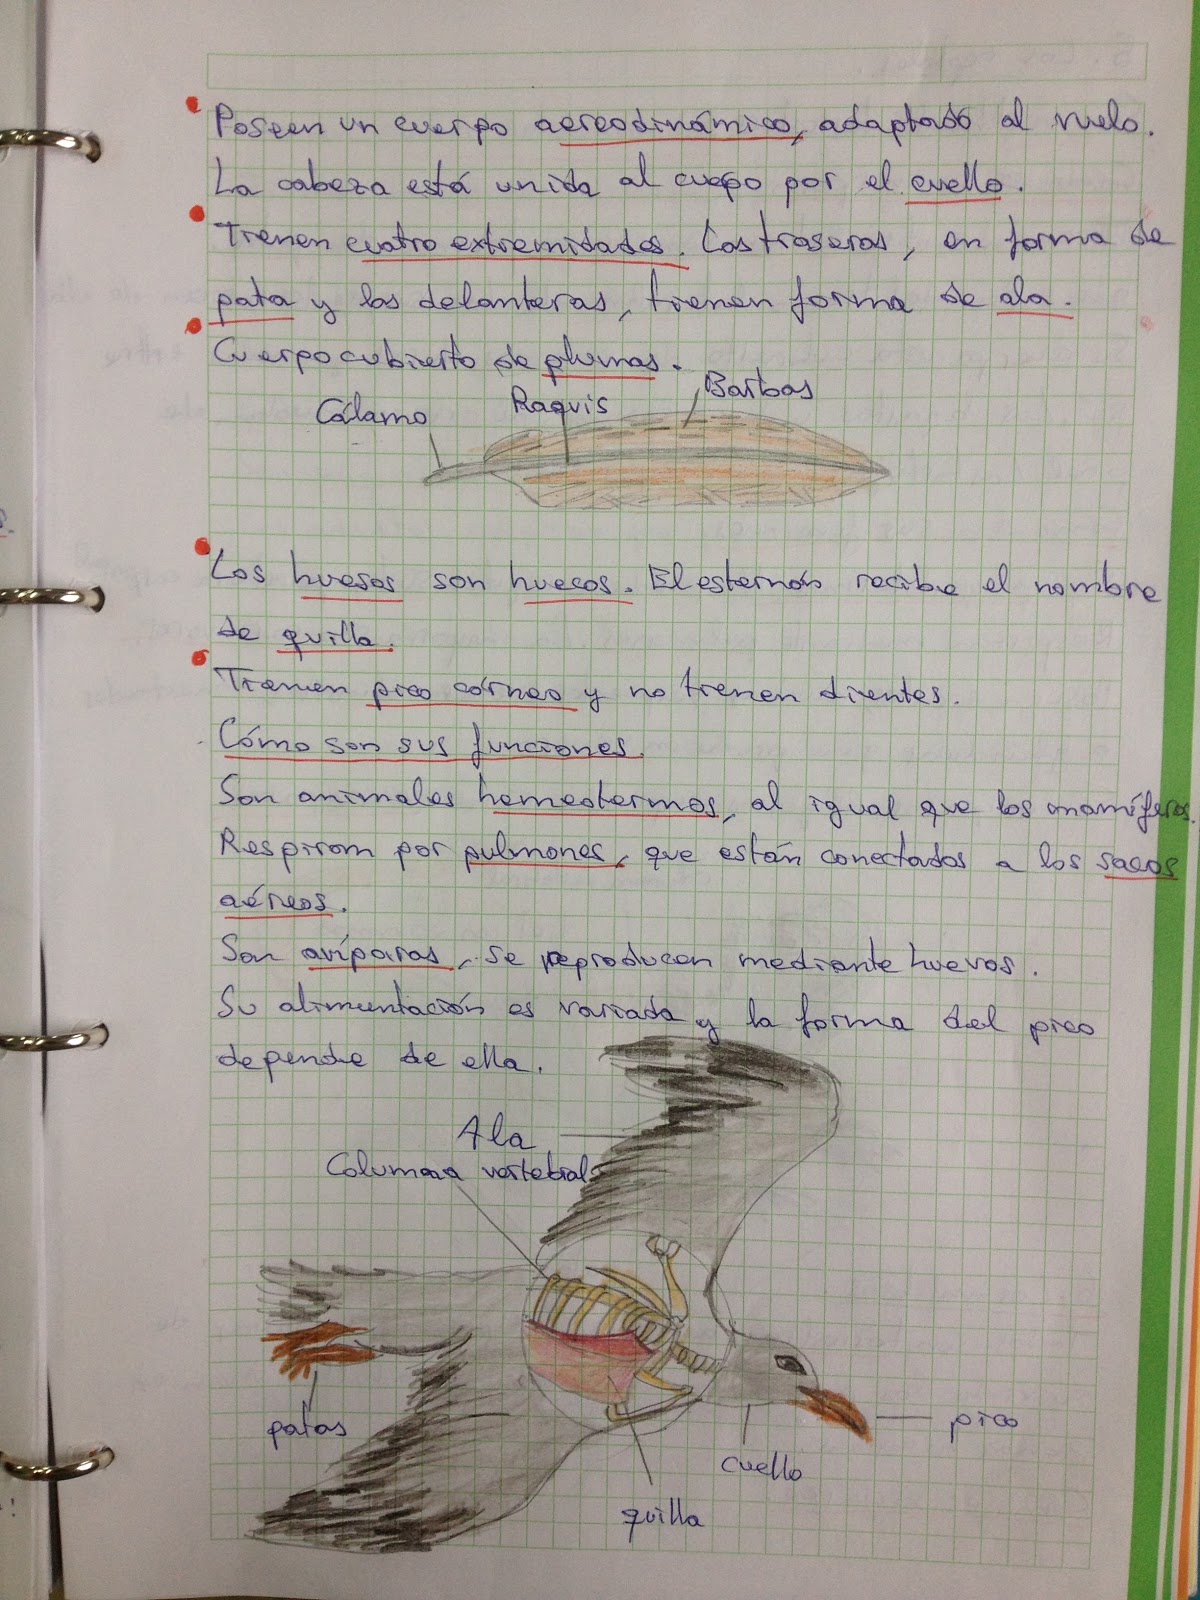 Poseen un cuerpo aereodinámico, adaptado al vuelo.
La cabeza está unida al cuepo por el cuello.
Tienen cuatro extremidades. Las traseras, en forma de
pata y las delanteras, tienen forma de ala.
Cuerpo cubierto de plumas.
Barbas
Raquis
Cálamo
Los huesos son huecos. El esternón recibe el nombre
de quilla.
Tienen pico córneo y no tienen dientes.
Cómo son sus funciones.
Son animales homeotermos, al igual que los mamíferos.
Respiran por pulmones, que están conectados a los sacos
aéreos.
Son ovíparas, se reproducen mediante huevos.
Su alimentación es variada y la forma del pico
depende de ella.
Ala
Columna vertebral
patas
pico
cuello
quilla